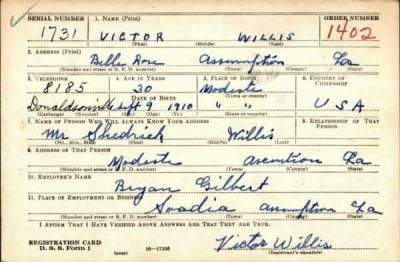 SERIAL NUMBER 1. NAME (Print) ORDER NUMBER
1731 VICTOR WILLIS 1402
(First) (Middle) (Last)
2. ADDRESS (Print)
Belle Rose Assumption La
(Number and street or R. F. D. number) (Town) (County) (State)
3. TELEPHONE 4. AGE IN YEARS 5. PLACE OF BIRTH 6. COUNTRY OF CITIZENSHIP
8185 30 Modeste
DATE OF BIRTH (Town or county)
Donaldsonville Sept 9 1910 " " USA
(Exchange) (Number) (Mo.) (Day) (Yr.) (State or country)
7. NAME OF PERSON WHO WILL ALWAYS KNOW YOUR ADDRESS 8. RELATIONSHIP OF THAT PERSON
Mr Shedrick Willis
(Mr., Mrs., Miss) (First) (Middle) (Last)
9. ADDRESS OF THAT PERSON
Modeste La
(Number and street or R. F. D. number) (Town) (County) (State)
10. EMPLOYER'S NAME
Bryan Gilbert
11. PLACE OF EMPLOYMENT OR BUSINESS
assumption La
(Number and street or R. F. D. number) (Town) (County) (State)
I AFFIRM THAT I HAVE VERIFIED ABOVE ANSWERS AND THAT THEY ARE TRUE.
REGISTRATION CARD
D. S. S. Form 1 (over) 16—17105 Victor Willis
(Registrant's signature)